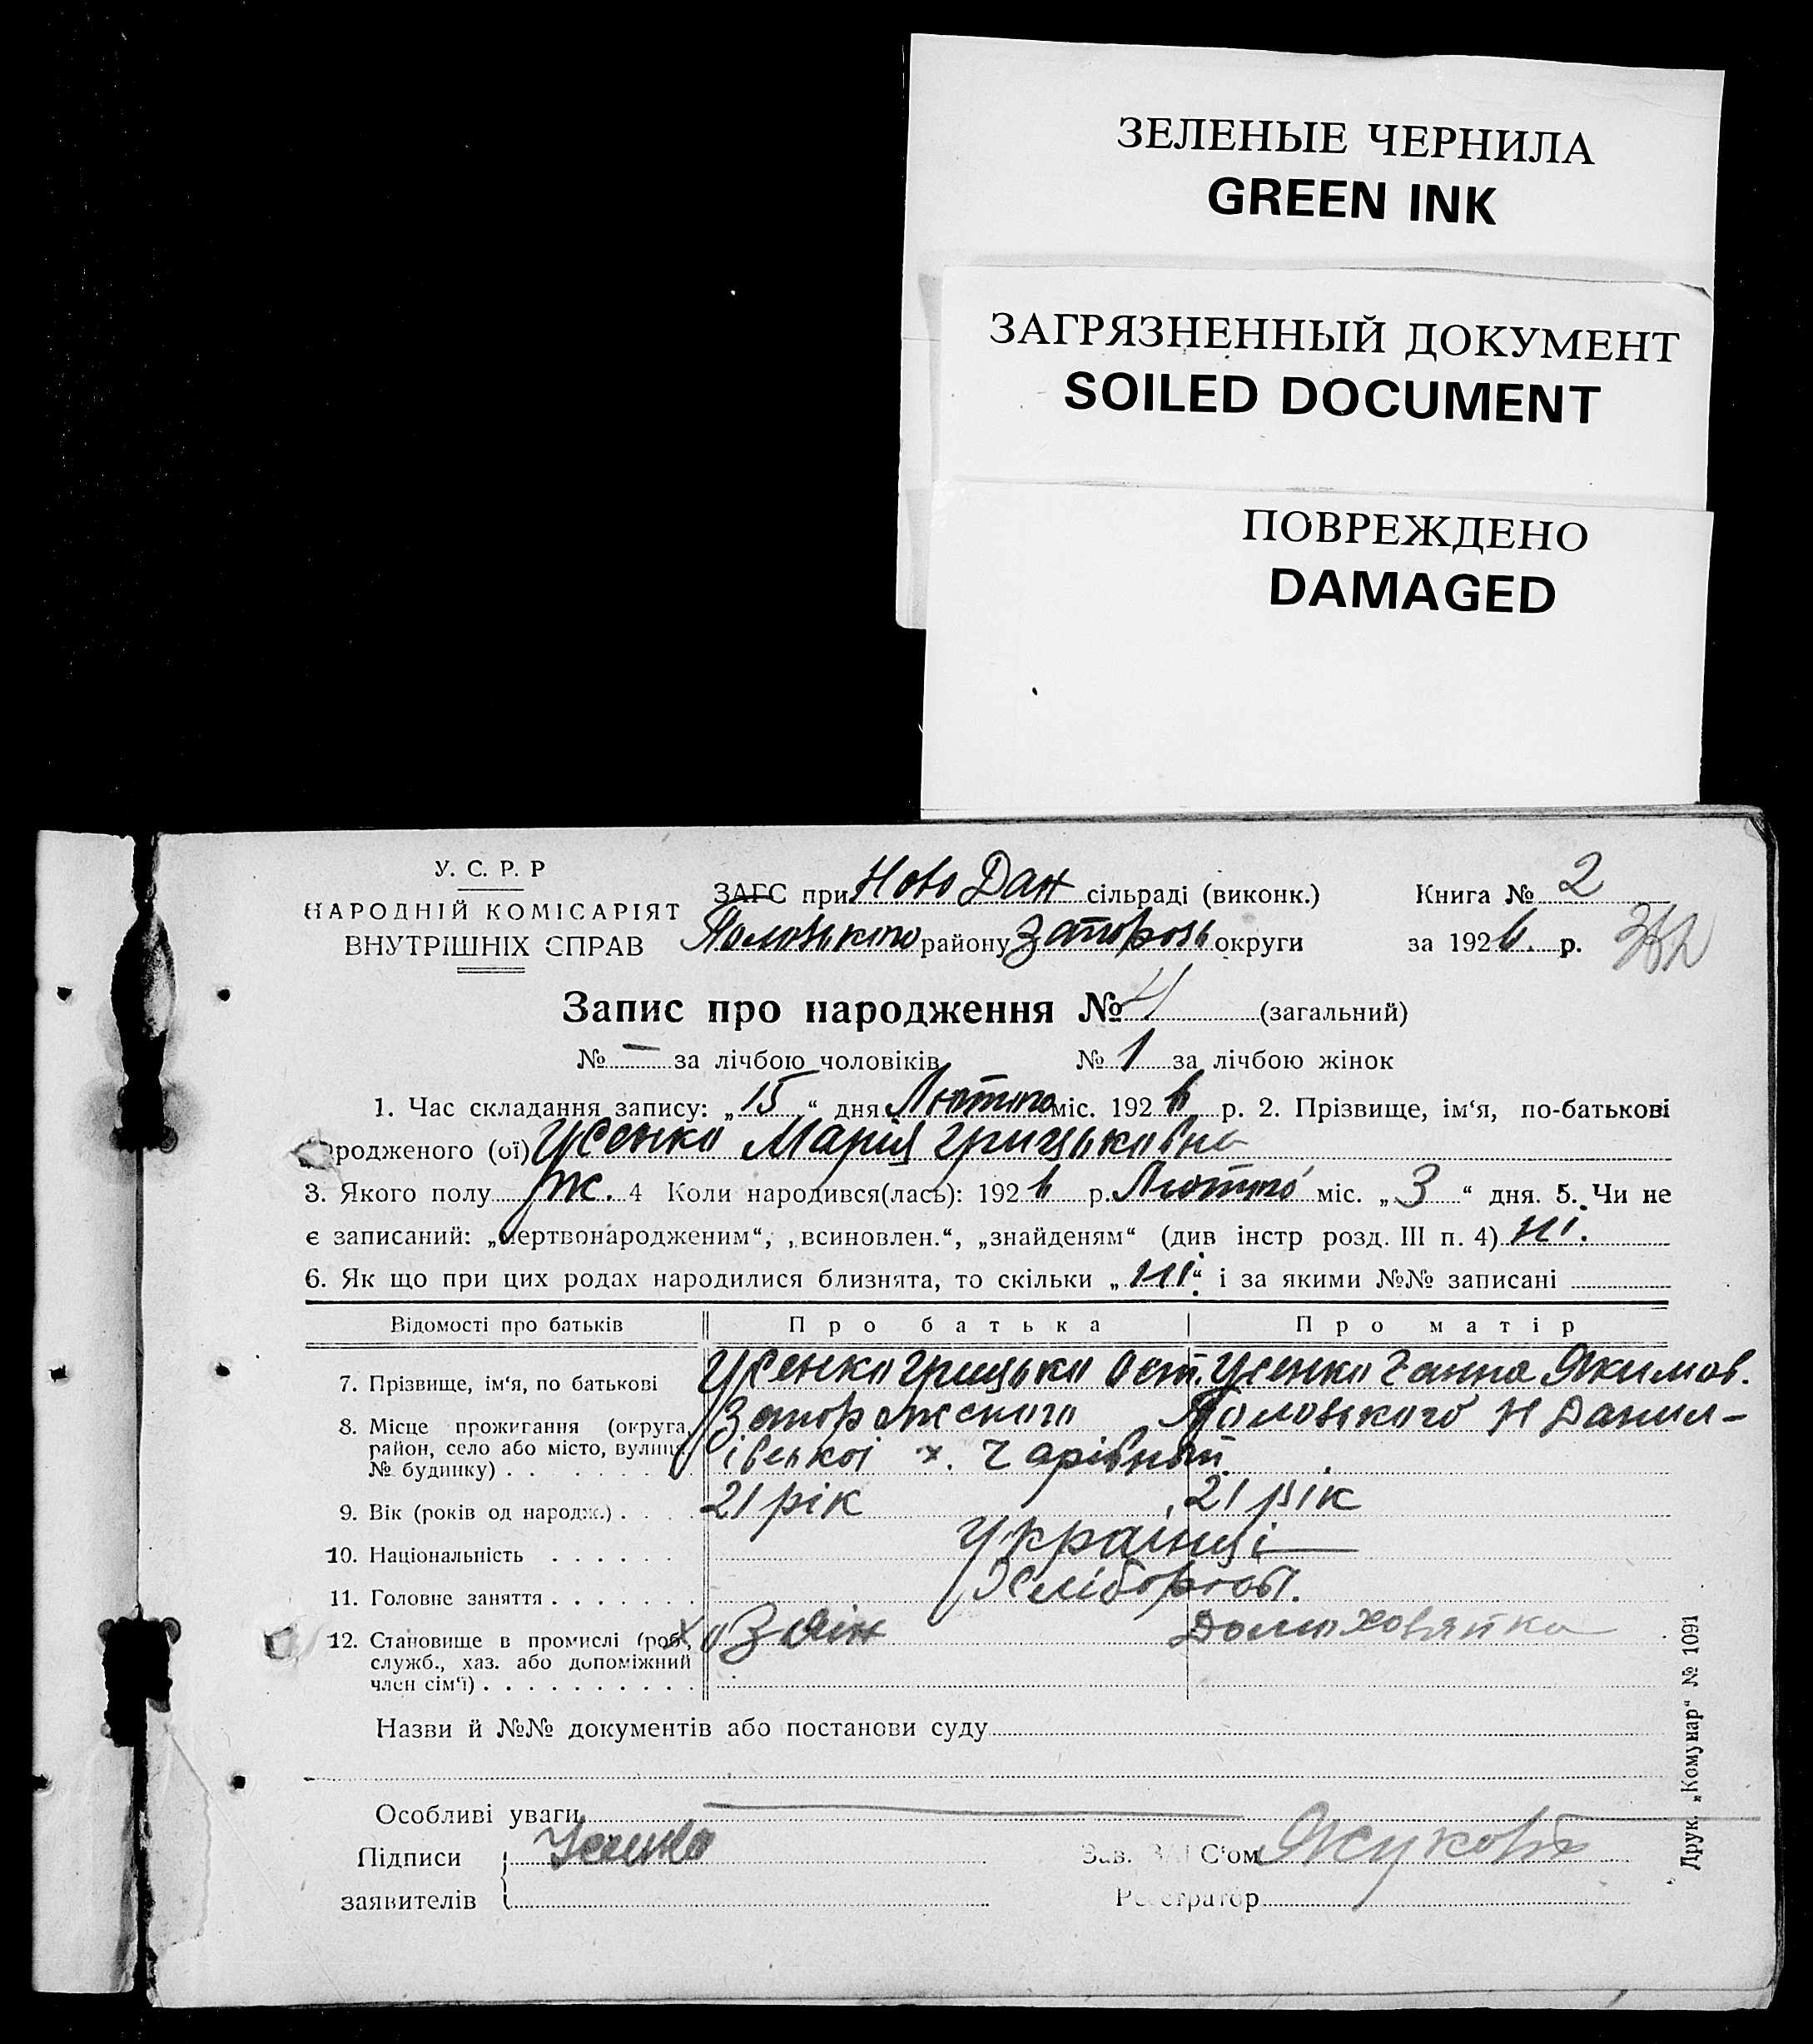 ЗЕЛЕНЫЕ ЧЕРНИЛА
GREEN INK
ЗАГРЯЗНЕННЫЙ ДОКУМЕНТ
SOILED DOCUMENT
ПОВРЕЖДЕНО
DAMAGED
У. С. Р. Р
НАРОДНІЙ КОМІСАРІЯТ
ВНУТРІШНІХ СПРАВ
ЗАГС при Ново Дан сільраді (виконк.)
району Запорозь округи
Книга № 2
за 1926. р.
Запис про народження № 4 (загальний)
№ — за лічбою чоловіків № 1 за лічбою жінок
1. Час складання запису: „15“ дня Лютого міс. 1926 р. 2. Прізвище, ім‘я, по-батькові
родженого (ої) Усенко Марія Грицьковна
3. Якого полу ж. 4 Коли народився(лась): 1926 р. Лютого міс. „3“ дня. 5. Чи не
є записаний: „мертвонародженим“, „всиновлен.“, „знайденям“ (див інстр розд. III п. 4) ні.
6. Як що при цих родах народилися близнята, то скільки „ні“ і за якими №№ записані
Відомості про батьків Про батька Про матір
7. Прізвище, ім‘я, по батькові Усенко Грицько Ост. Усенко Ганна Якимов.
8. Місце прожигання (округа, Запорожского Н Данил-
район, село або місто, вулиця, івської х. Чарівный
№ будинку)
9. Вік (років од народж.) 21 рік 21 рік
10. Національність Українці
11. Головне заняття Хлібороб.
12. Становище в промислі (роб., Домохозяйка
служб., хаз. або допоміжний
член сім‘ї)
Назви й №№ документів або постанови суду
Особливі уваги
Підписи Усенко
заявителів
Зав. ЗАГС‘ом Жукова
Регстратор
Друк. „Комунар“ № 1091